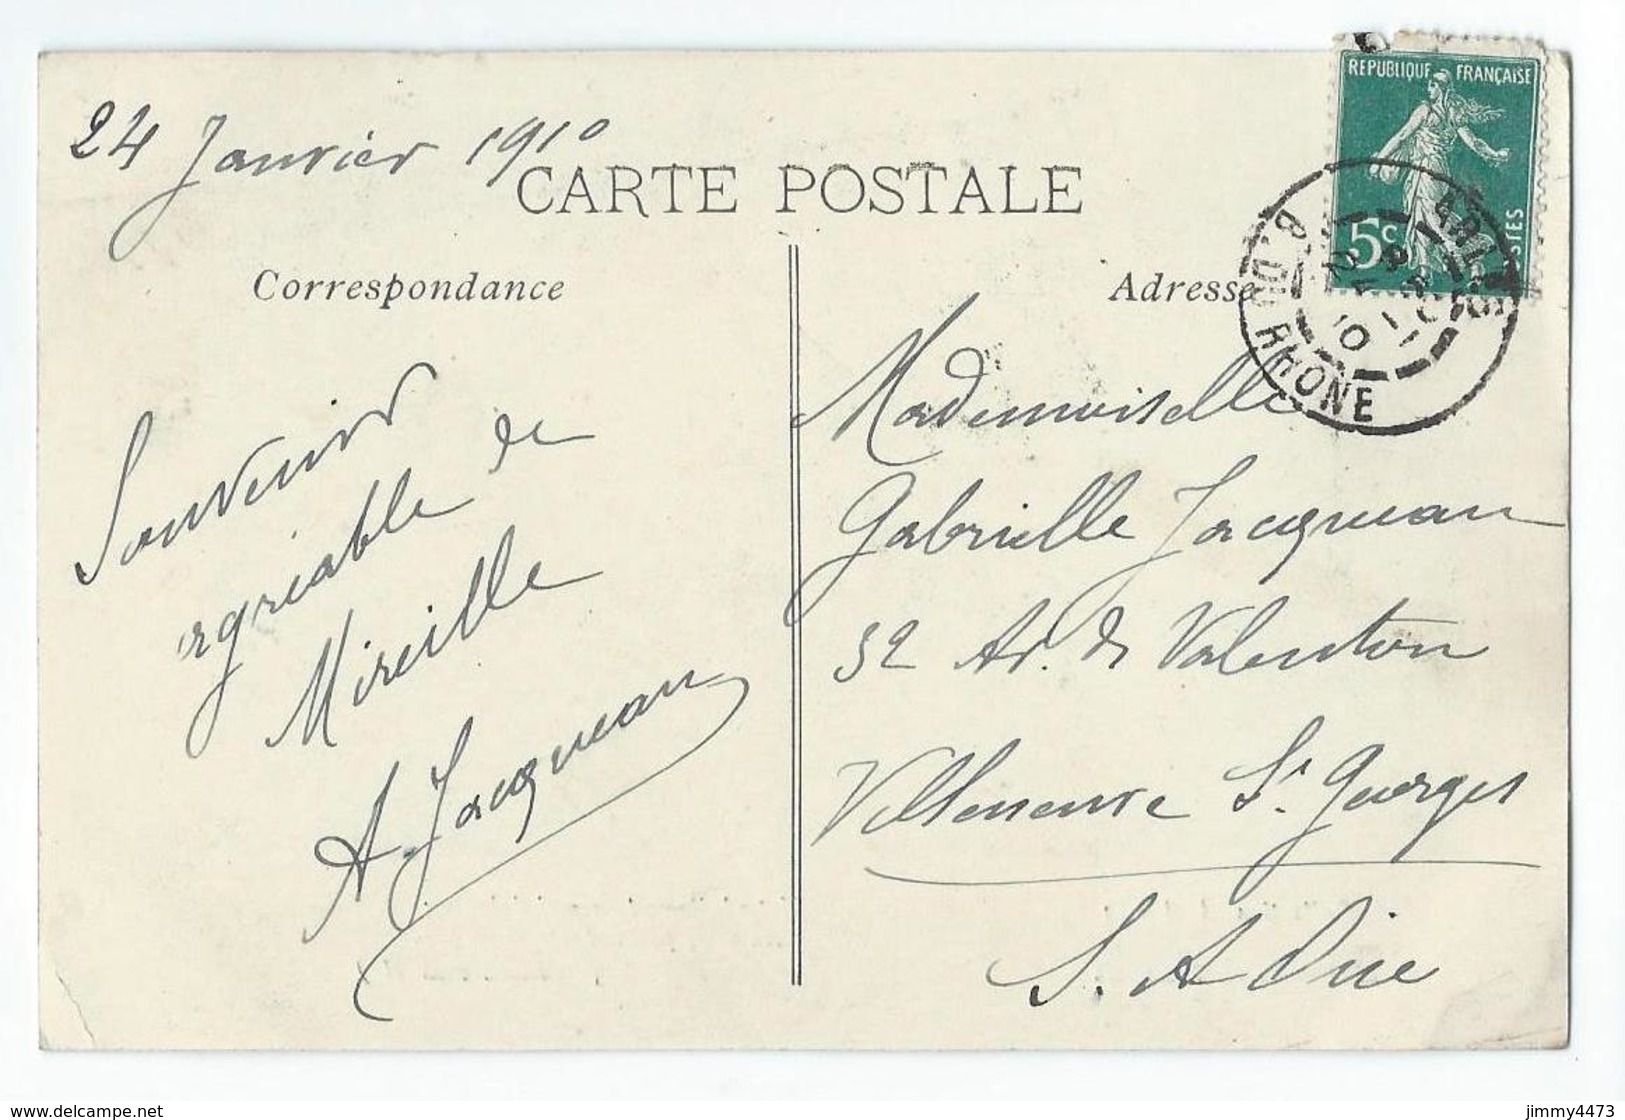 24 Janvier 1910
CARTE POSTALE
Correspondance
Souvenir
agréable de
Mireille
A. Jacqueau
Adresse
Mademoiselle
Gabrielle Jacqueau
32 Av. de Valenton
Villeneuve St. Georges
S. & Oise
REPUBLIQUE FRANÇAISE
5c
POSTES
ARLES
B. DU RHONE
jimmy4473 - delcampe.net
www.delcampe.net